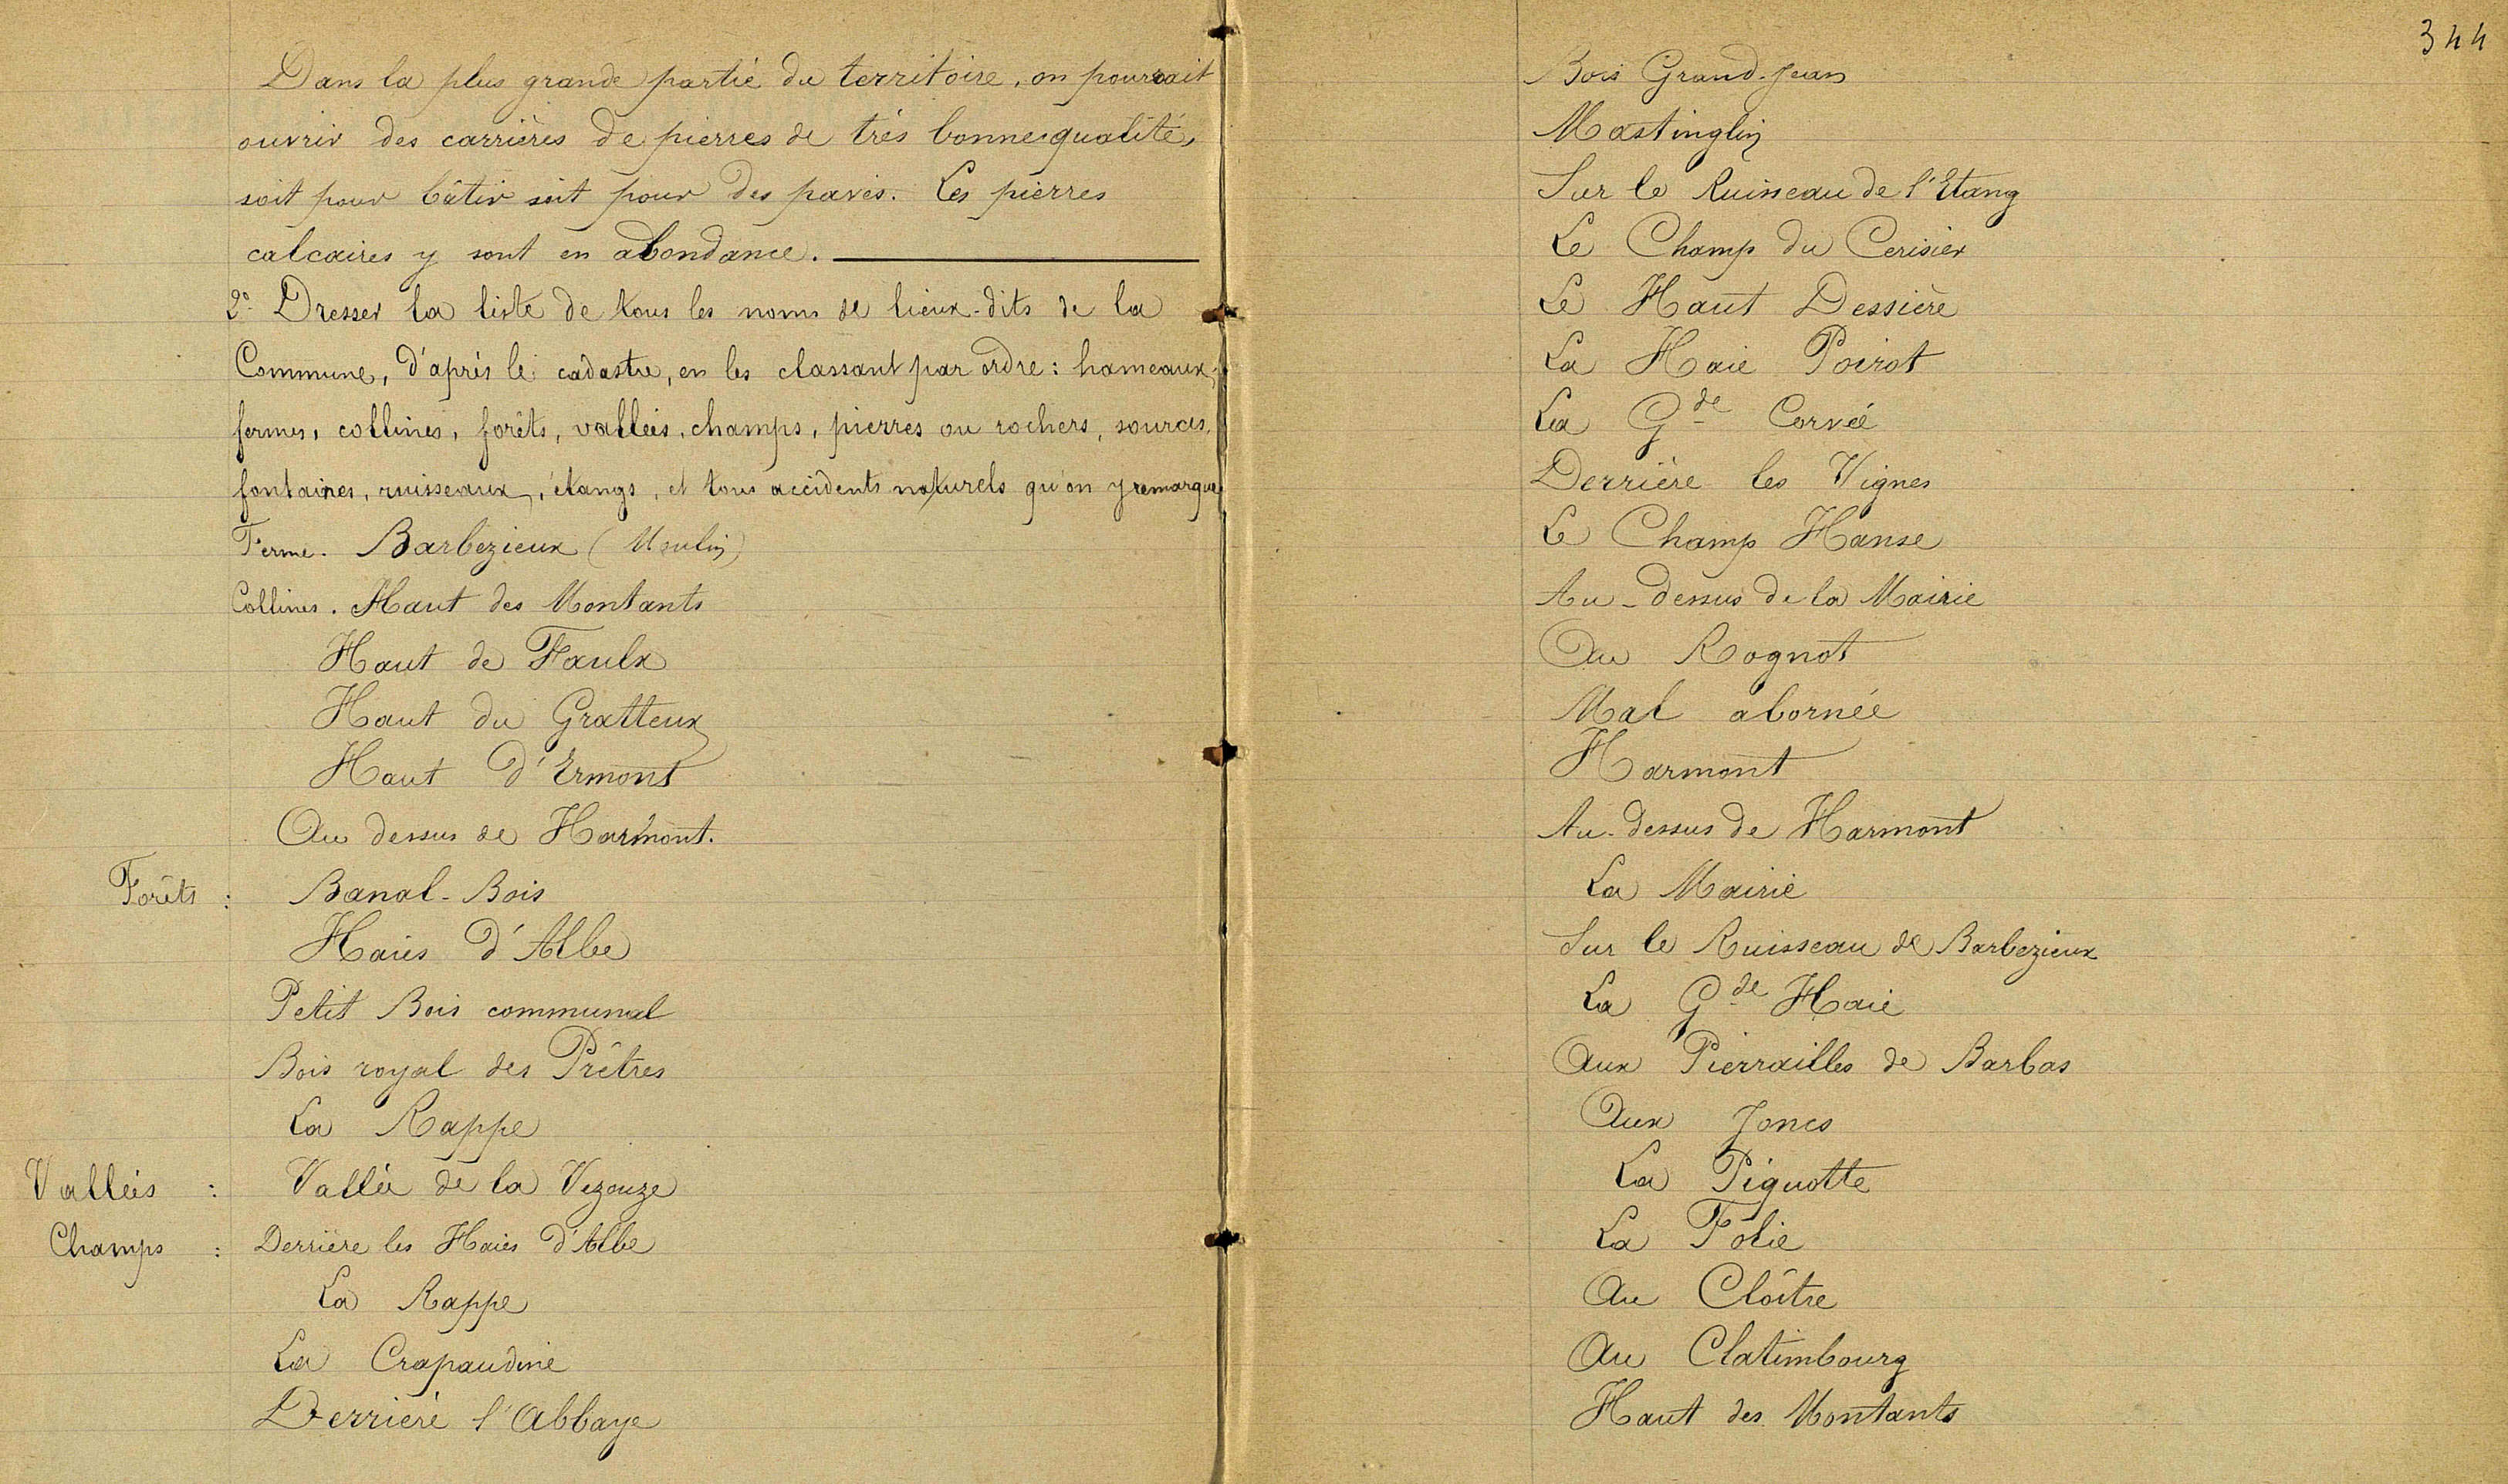 Dans la plus grande partie du territoire, on pourrait
ouvrir des carrières de pierres de très bonne qualité,
soit pour bâtir soit pour des pavés. Les pierres
calcaires y sont en abondance.
2° Dresser la liste de tous les noms de lieux-dits de la
Commune, d'après le cadastre, en les classant par ordre : hameaux,
fermes, collines, forêts, vallées, champs, pierres ou rochers, sources,
fontaines, ruisseaux, étangs, et tous accidents naturels qu'on y remarque
Ferme. Barbezieux (Moulin)
Collines. Haut des Montants
Haut de Faulx
Haut du Gratteux
Haut d'Ermont
Au dessus de Harmont.
Forêts : Banal-Bois
Haies d'Albe
Petit Bois communal
Bois royal des Prêtres
La Rappe
Vallées : Vallée de la Vezouze
Champs : Derrière les Haies d'Albe
La Rappe
La Crapaudine
Derrière l'Abbaye
344
Bois Grand-Jean
Mastinglin
Sur le Ruisseau de l'Etang
Le Champ du Cerisier
Le Haut Dessière
La Haie Poirot
La Gde Corvée
Derrière les Vignes
Le Champ Hanse
Au-dessus de la Mairie
Au Rognot
Mal abornée
Harmont
Au-dessus de Harmont
La Mairie
Sur le Ruisseau de Barbezieux
La Gde Haie
Aux Pierrailles de Barbas
Aux Joncs
La Piquotte
La Folie
Au Cloître
Au Clatimbourg
Haut des Montants